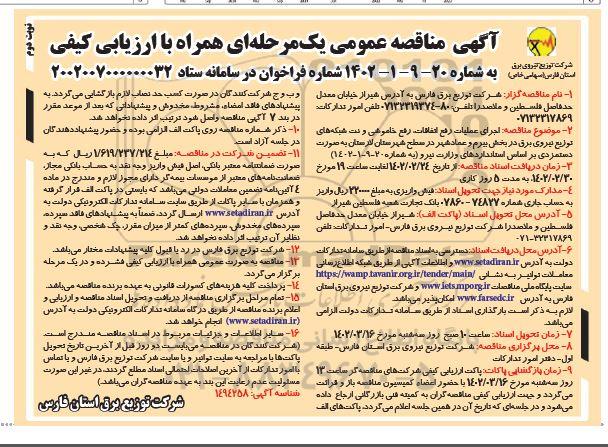 نوبت دوم
آگهی مناقصه عمومی یک‌مرحله‌ای همراه با ارزیابی کیفی
به شماره ۲۰-۹-۱-۱۴۰۲ شماره فراخوان در سامانه ستاد ۲۰۰۲۰۰۷۰۰۰۰۰۰۳۲
شرکت توزیع نیروی برق
استان فارس (سهامی خاص)
۱- نام مناقصه‌گزار: شرکت توزیع برق فارس به آدرس شیراز خیابان معدل
حدفاصل فلسطین و ملاصدرا تلفن: ۸۰-۰۷۱۳۲۳۱۹۳۷۴ تلفن امور تدارکات:
۰۷۱۳۲۳۱۷۸۶۹
۲- موضوع مناقصه: اجرای عملیات رفع اتفاقات، رفع خاموشی و نت شبکه‌های
توزیع نیروی برق در بخش بیرم و عمادشهر در سطح شهرستان لارستان به صورت
دستمزدی بر اساس استانداردهای وزارت نیرو (به شماره ۲۰-۹-۱-۱۴۰۲)
۳- زمان دریافت اسناد مناقصه: از تاریخ ۱۴۰۲/۰۲/۲۴ لغایت ساعت ۱۹ مورخ
۱۴۰۲/۰۲/۳۰ به مدت ۵ روز کاری
۴- مدارک مورد نیاز جهت تحویل اسناد: فیش واریزی به مبلغ ۲۲۰۰۰۰ ریال واریز
به حساب جاری شماره ۷۴۸۲۷-۰۷۸۶۰ بانک تجارت شعبه فلسطین شیراز
۵- آدرس محل تحویل اسناد (پاکت الف): شیراز خیابان معدل حدفاصل
فلسطین و ملاصدرا شرکت توزیع نیروی برق فارس- امور تدارکات: تلفن
۰۷۱-۳۲۳۱۷۸۶۹
۶- آدرس محل دریافت اسناد: دسترسی به اسناد مناقصه از طریق سامانه تدارکات
دولت به آدرس www.setadiran.ir و اطلاعات آگهی از طریق شبکه اطلاع‌رسانی
معاملات توانیر به نشانی https://wamp.tavanir.org.ir/tender/main/
سایت پایگاه ملی مناقصات www.iets.mporg.ir و شرکت توزیع نیروی برق استان
فارس به آدرس www.farsedc.ir امکان‌پذیر می‌باشد.
لازم به ذکر است بارگذاری اسناد از طریق سامانه تدارکات دولت الزامی
می‌باشد.
۷- زمان تحویل اسناد: ساعت ۱۰ صبح روز سه‌شنبه مورخ ۱۴۰۲/۰۳/۱۶
۸- محل برگزاری مناقصه: شرکت توزیع نیروی برق استان فارس- طبقه
اول- دفتر امور تدارکات
۹- زمان بازگشایی پاکات: پاکت ارزیابی کیفی شرکت‌های مناقصه‌گر ساعت ۱۳
روز سه‌شنبه مورخ ۱۴۰۲/۰۳/۱۶ با حضور اعضای کمیسیون مناقصه باز و قرائت
می‌گردد و جهت ارزیابی کیفی مناقصه‌گران به کمیته فنی بازرگانی ارجاع داده
می‌شود و در جلسه‌ای که تاریخ آن در همین جلسه اعلام می‌گردد، پاکت‌های الف
و ب و ج شرکت‌کنندگان در صورت کسب حد نصاب لازم بازگشایی می‌گردد. به
پیشنهادهای فاقد امضاء، مشروط، مخدوش و پیشنهاداتی که بعد از موعد مقرر
در بند ۷ آگهی مناقصه واصل شود ترتیب اثر داده نخواهد شد.
۱۰- ذکر شماره مناقصه روی پاکت الف الزامی بوده و حضور پیشنهاددهندگان
در جلسه آزاد است.
۱۱- تضمین شرکت در مناقصه: مبلغ ۷/۶۱۹/۲۳۷/۲۱۴ ریال که به
صورت ضمانتنامه معتبر بانکی، اصل فیش واریز وجه نقد به حساب بانکی مجاز،
ضمانت‌نامه‌های معتبر از موسسات بیمه‌گر دارای مجوز لازم و مندرج در ماده
۴ آئین‌نامه تضمین معاملات دولتی می‌باشد که بایستی در پاکت الف قرار گرفته
و همزمان با سایر پاکات از طریق سایت سامانه تدارکات الکترونیکی دولت به
آدرس www.setadiran.ir ارسال گردد. ضمناً به پیشنهادهای فاقد سپرده،
سپرده‌های مخدوش، سپرده‌های کمتر از میزان مقرر، چک شخصی، وجه نقد و
نظایر آن ترتیب اثر داده نخواهد شد.
۱۲- شرکت توزیع برق فارس در رد یا قبول کلیه پیشنهادات مختار می‌باشد.
۱۳- مناقصه به صورت عمومی همراه با ارزیابی کیفی فشرده و در یک مرحله
برگزار می‌گردد.
۱۴- پرداخت کلیه هزینه‌های کسورات قانونی به عهده برنده مناقصه می‌باشد.
۱۵- تمام مراحل برگزاری مناقصه از دریافت و تحویل اسناد مناقصه و ارزیابی و
اعلام برنده مناقصه از طریق درگاه سامانه تدارکات الکترونیکی دولت به آدرس
(www.setadiran.ir) انجام خواهد شد.
۱۶- سایر اطلاعات و جزئیات مربوط در اسناد مناقصه مندرج است.
(شرکت‌کنندگان در مناقصه می‌بایست دو روز قبل از آخرین تاریخ تحویل
پاکت‌ها با مراجعه به سایت توانیر و یا سایت شرکت توزیع برق فارس و یا تماس
با امور تدارکات از آخرین اصلاحات احتمالی اسناد مطلع گردند، در غیر این صورت
مسئولیت عدم رعایت این بند به عهده مناقصه‌گران می‌باشد.)
شناسه آگهی: ۱۴۹۴۲۵۸
شرکت توزیع برق استان فارس